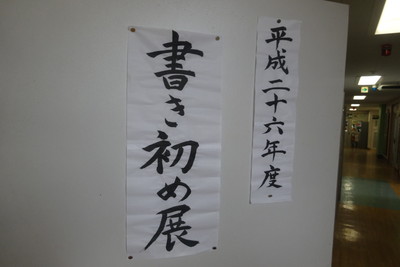 平成二十六年度
書き初め展